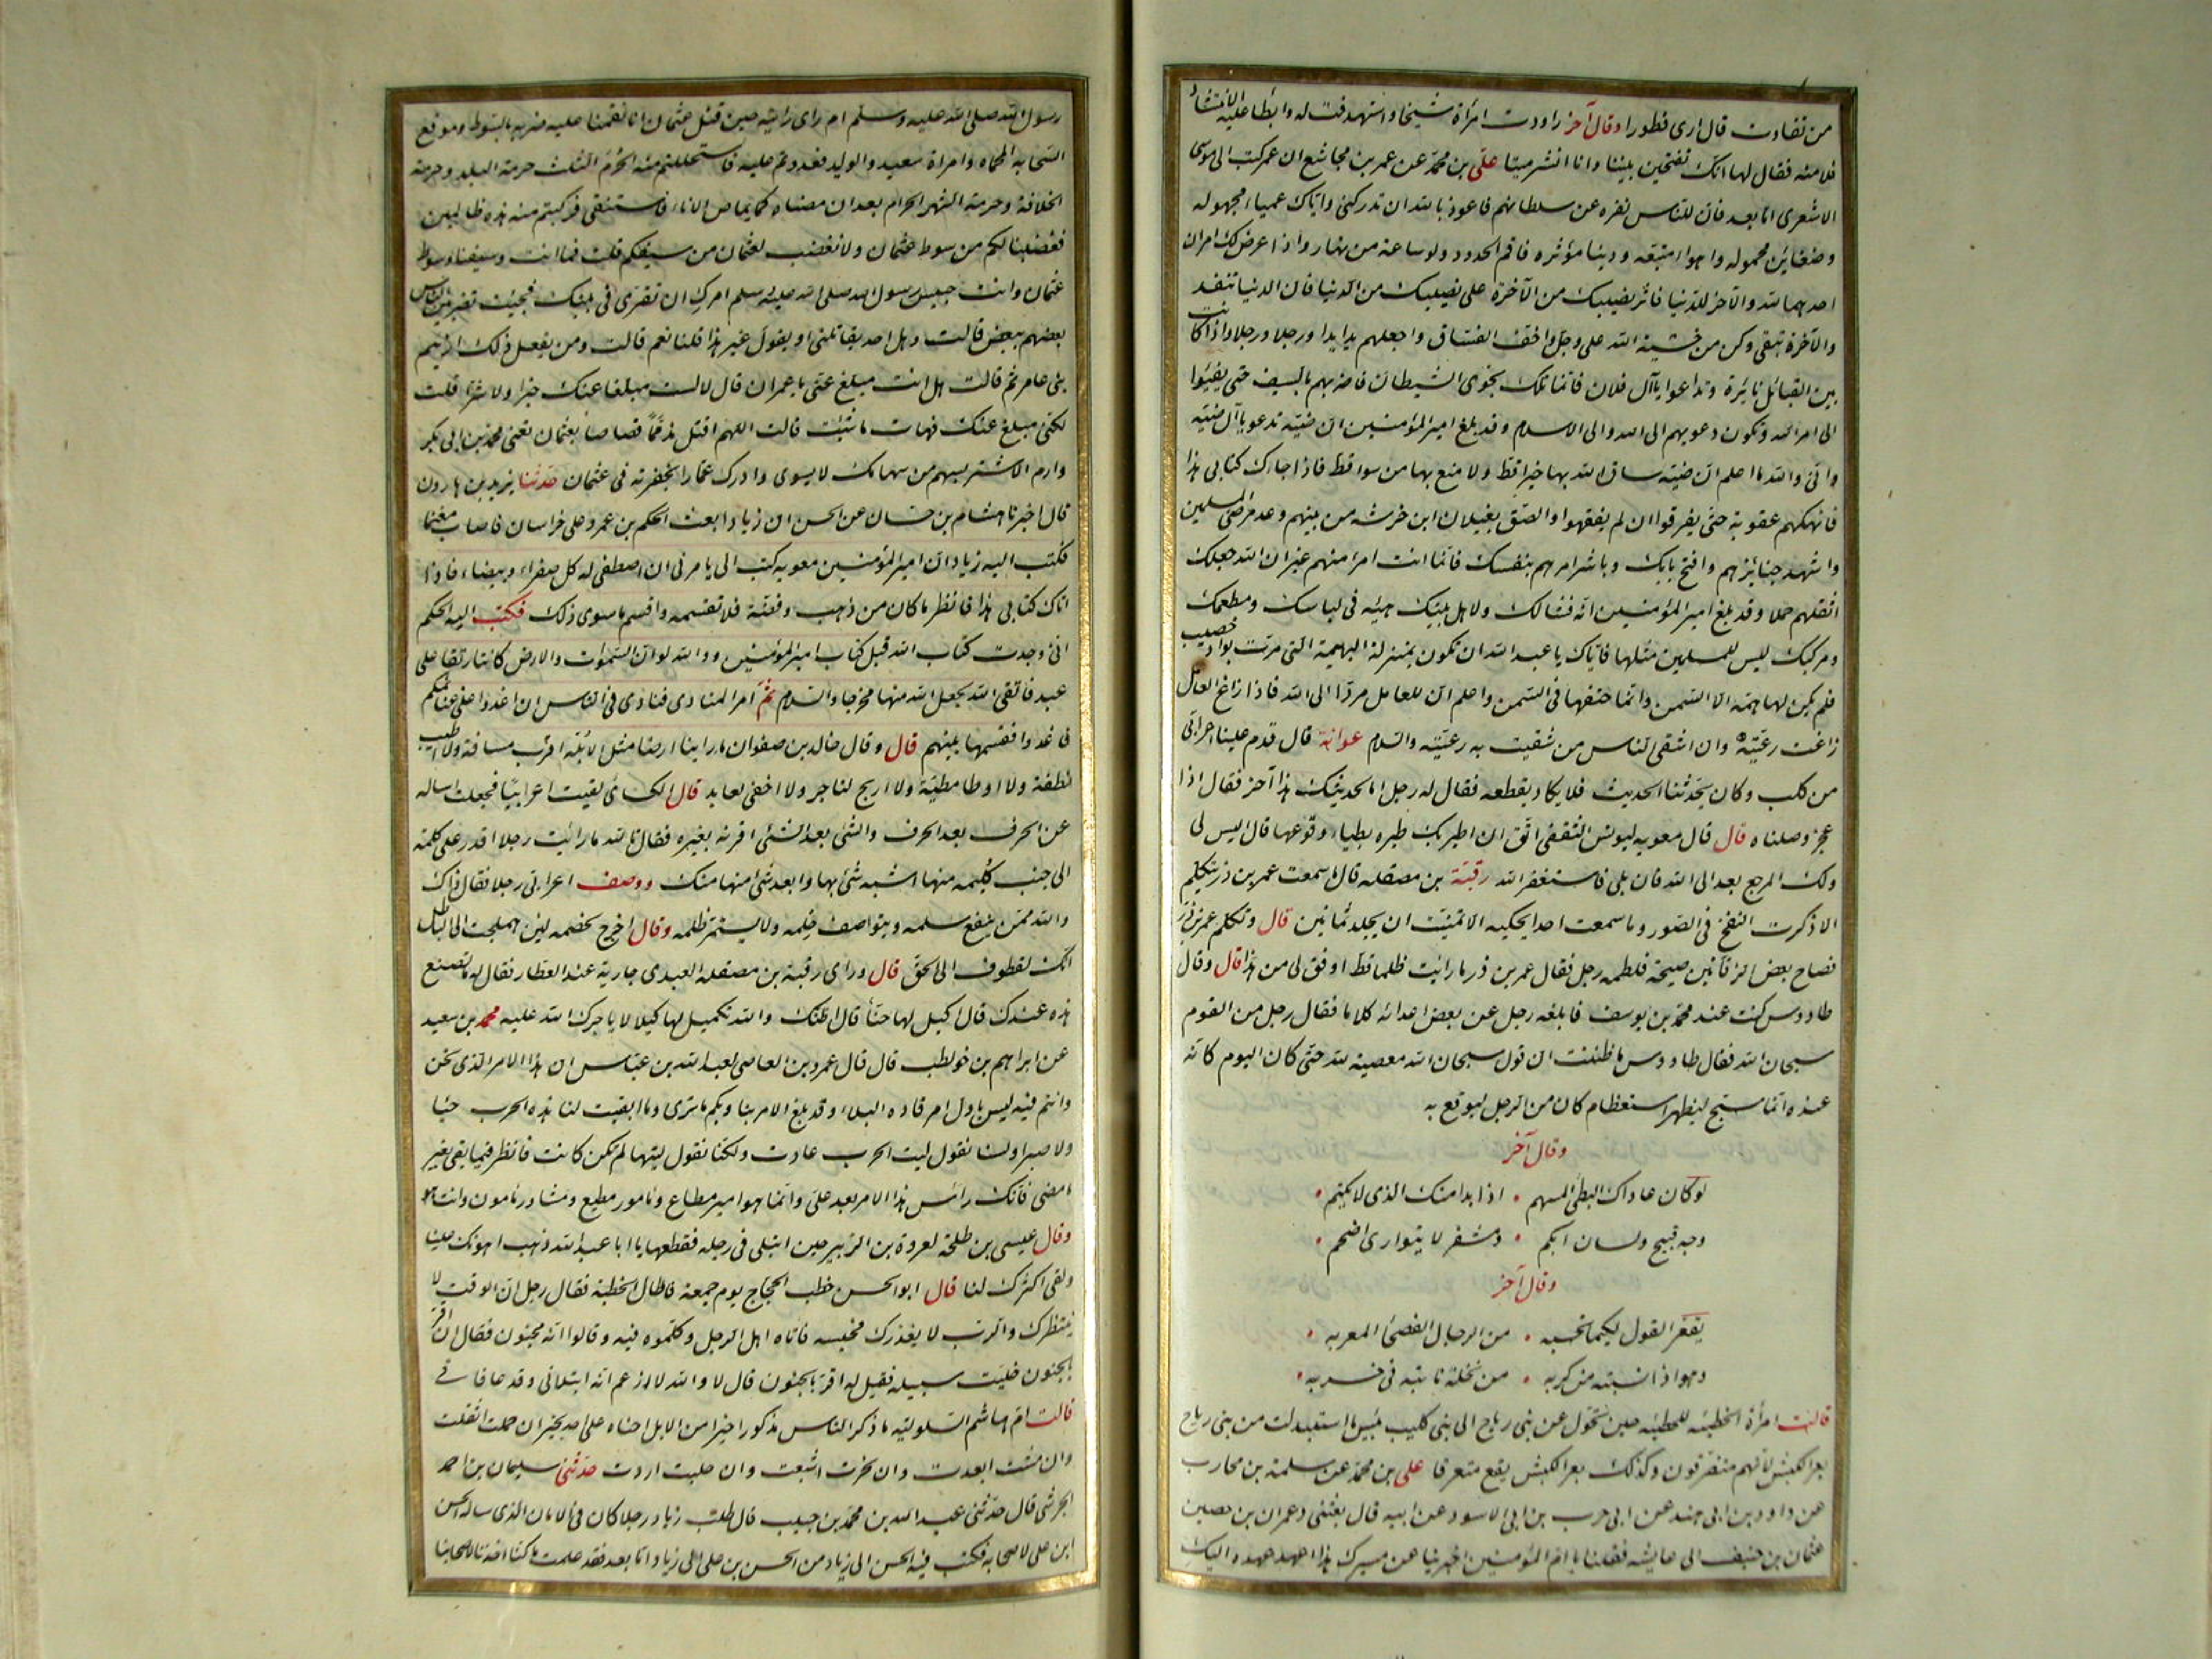 من تفاوت قال ارى فطورا وقال آخر راودت امرأة شيخا واستهدفت له وابطا عليه الانتشار
فلامته فقال لها انك تفتحين بيتا وانا انشر ميتا علي بن محمد عن عمر بن مجاشع ان عمر كتب الى ابى موسى
الاشعرى اما بعد فان للناس نفره عن سلطانهم فاعوذ بالله ان تدركنى واياك عمياء مجهوله
وضغاين محموله واهواء متبعه ودينا مؤثره فاقم الحدود ولو ساعة من نهار واذا عرض لك امران
احدهما لله والآخر للدنيا فآثر نصيبك من الآخرة على نصيبك من الدنيا فان الدنيا تنفد
والآخرة تبقى وكن من خشية الله على وجل واخف الفساق واجعلهم يدا يدا ورجلا ورجلا واذا كانت
بين القبائل نايرة وتداعوا ياآل فلان فانما تلك نجوى الشيطان فاضربهم بالسيف حتى يفيئوا
الى امر الله وتكون دعويهم الى الله والى الاسلام وقد بلغ امير المؤمنين ان ضبّة تدعو ياآل ضبّة
وانى والله ما اعلم ان ضبّة ساق الله بها خيرا قط ولا منع بها من سوء قط فاذا جاءك كتابى هذا
فانهكهم عقوبة حتى يفرقوا ان لم يفقهوا والصق بغيلان ابن خرشه من بينهم وعد مرضى المسلمين
واشهد جنايزهم وافتح بابك وباشر امرهم بنفسك فانما انت امرء منهم غير ان الله جعلك
اثقلهم حملا وقد بلغ امير المؤمنين انه فشا لك ولاهل بيتك هيئه فى لباسك ومطعمك
ومركبك ليس للمسلمين مثلها فاياك يا عبد الله ان تكون بمنزلة البهيمة التى مرت بواد خصيب
فلم يكن لها همّة الا السمن وانما حتفها فى السمن واعلم ان للعامل مردّا الى الله فاذا زاغ العامل
زاغت رعيّته وان اشقى الناس من شقيت به رعيّته والسلام عوانة قال قدم علينا اعرابى
من كلب وكان يحدثنا الحديث فلا يكاد يقطعه فقال له رجل اما لحديثك هذا آخر فقال اذا
عجز وصلناه قال قال معويه ليونس الثقفى اتق ان اطير بك طيره بطياء وقوعها قال اليس لى
ولك المرجع بعد الى الله قال بلى فاستغفر الله رقبة بن مصقله قال ما سمعت عمر بن ذر يتكلم
الا ذكرت النفخ فى الصور وما سمعت احدا يحكيه الا تمنيت ان يجلد ثمانين قال وتكلم عمر بن ذر
فصاح بعض الزفانين صيحة فلطمه رجل فقال عمر بن ذر ما رايت ظلما قط اوفق لى من هذا قال وقال
طاووس كنت عند محمد بن يوسف فابلغه رجل عن بعض اعدائه كلاما فقال رجل من القوم
سبحان الله فقال طاووس ما ظننت ان قول سبحان الله معصية لله حتى كان اليوم كانه
عنده انما سبّح ليظهر استعظام كان من الرجل ليوقع به
وقال آخر
لو كان عاداك البطئ المسهم • اذا بدا منك الذى لا يكتم •
وجه قبيح ولسان ابكم • ومشفر لا يتوارى اضجم •
وقال آخر
يقعّر القول لكيما تحسبه • من الرجال الفصحاء المعربه •
وهو اذا نسبته من كربه • من نخلة نابته فى خربه •
قالت امرأة الحطيئه للحطيئه حين تحوّل عن بنى رياح الى بنى كليب بئس ما استبدلت من بنى رياح
بعر الكبش لانهم متفرقون وكذلك بعر الكبش يقع متفرقا على بن محمد عن سلمة بن محارب
عن داود بن ابى هند عن ابى حرب بن ابى الاسود عن ابيه قال بعثنى وعمران بن حصين
عثمان بن حنيف الى عايشه فقلنا يا امّ المؤمنين اخبرينا عن مسيرك هذا اعهد عهده اليك
رسول الله صلى الله عليه وسلم ام راى رايتيه حين قتل عثمان انا نقمنا عليه ضربه بالسوط وموقع
السحابه المحماه وامرة سعيد والوليد فعدوتم عليه فاستحللتم منه الحرم الثلث حرمة البلد وحرمة
الخلافة وحرمة الشهر الحرام بعد ان مصناه كما يماص الاناء فاستنقى فركبتم منه هذه ظالمين
فغضبنا لكم من سوط عثمان ولا نغضب لعثمان من سيفكم قلت فما انت وسيفنا وسوط
عثمان وانت حبيس رسول الله صلى الله عليه وسلم امرك ان تقرّى فى بيتك فجيت تضربين الناس
بعضهم ببعض قالت وهل احد يقاتلنى او يقول غير هذا قلنا نعم قالت ومن يفعل ذلك ازنيم
بنى عامر ثم قالت هل انت مبلغ عنّى يا عمران قال لا لست مبلغا عنك خيرا ولا شرّا قلت
لكنى مبلغ عنك فهات ما شئت قالت اللهم اقتل مذمّما قصاصا بعثمان تعنى محمد بن ابى بكر
وارم الاشتر بسهم من سهامك لا يشوى وادرك عمّارا بخفرته فى عثمان حدثنا يزيد بن هارون
قال اخبرنا هشام بن حسان عن الحسن ان زيادا بعث الحكم بن عمرو على خراسان فاصاب مغنما
فكتب اليه زياد ان امير المؤمنين معويه كتب الى يامرنى ان اصطفى له كل صفراء وبيضاء فاذا
اتاك كتابى هذا فانظر ما كان من ذهب وفضّة فلا تقسمه واقسم ما سوى ذلك فكتب اليه الحكم
انى وجدت كتاب الله قبل كتاب امير المؤمنين ووالله لو ان السموات والارض كانتا رتقا على
عبد فاتقى الله يجعل الله منها مخرجا والسلام ثمّ امر المنادى فنادى فى الناس ان اغدوا على غنائمكم
فاغدوا فقسمها بينهم قال وقال خالد بن صفوان ما راينا ارضا مثل الابلّه اقرب مسافة ولا اطيب
نطفة ولا اوطا مطيّة ولا اربح لتاجر ولا اخفى لعابد قال الكسائى لقيت اعرابيا فجعلت اساله
عن الحرف بعد الحرف والشئ بعد الشئ اقرنه بغيره فقال تالله ما رايت رجلا اقدر على كلمة
الى جنب كليمه منها اشبه شئ بها وابعد شئ منها منك ووصف اعرابى رجلا فقال ذاك
والله ممّن ينفع سلمه ويتواصف حلمه ولا يستمرّ ظلمه وقال اخرج لخصمه لئن هملجت الى الباطل
انك لقطوف الى الحق قال وراى رقبة بن مصقله العبدى جارية عند العطار فقال له ما تصنع
هذه عندك قال اكيل لها حنّا قال اظنك والله تكيل لها كيلا لا ياجرك الله عليه محمد بن سعيد
عن ابراهيم بن خولطب قال قال عمرو بن العاصى لعبد الله بن عبّاس ان هذا الامر الذى نحن
وانتم فيه ليس باول امر قاده البلاء وقد بلغ الامر بنا وبكم ما ترى وما ابقيت لنا هذه الحرب حيا
ولا صبرا ولسنا نقول ليت الحرب عادت ولكنّا نقول ليتها لم تكن كانت فانظر فيما بقى بغير
ما مضى فانك راس هذا الامر بعد على وانما هو امير مطاع ومامور مطيع ومشاور مامون وانت هو
وقال عيسى بن طلحة لعروة بن الزبير حين ابتلى فى رجله فقطعها يا ابا عبد الله ذهب اهونك علينا
وبقى اكثرك لنا قال ابو الحسن خطب الحجّاج يوم جمعة فاطال الخطبة فقال رجل ان الوقت لا
ينتظرك والرب لا يعذرك فحبسه فاتاه اهل الرجل وكلموه فيه وقالوا انه مجنون فقال ان اقرّ
بالجنون خليت سبيله فقيل له اقرّ بالجنون قال لا والله لا ازعم انه ابتلانى وقد عافانى
قالت ام هاشم السلوليّه ما ذكر الناس مذكورا خيرا من الابل احناه على احد بخير ان حملت اثقلت
وان مشت ابعدت وان نحرت اشبعت وان حلبت اروت حدثنى سليمان بن احمد
الجرشى قال حدثنى عبد الله بن محمد بن حبيب قال طلب زياد رجلا كان فى الامان الذى ساله الحسن
ابن على لاصحابه فكتب فيه الحسن الى زياد من الحسن بن على الى زياد اما بعد فقد علمت ما كنا اخذنا لاصحابنا